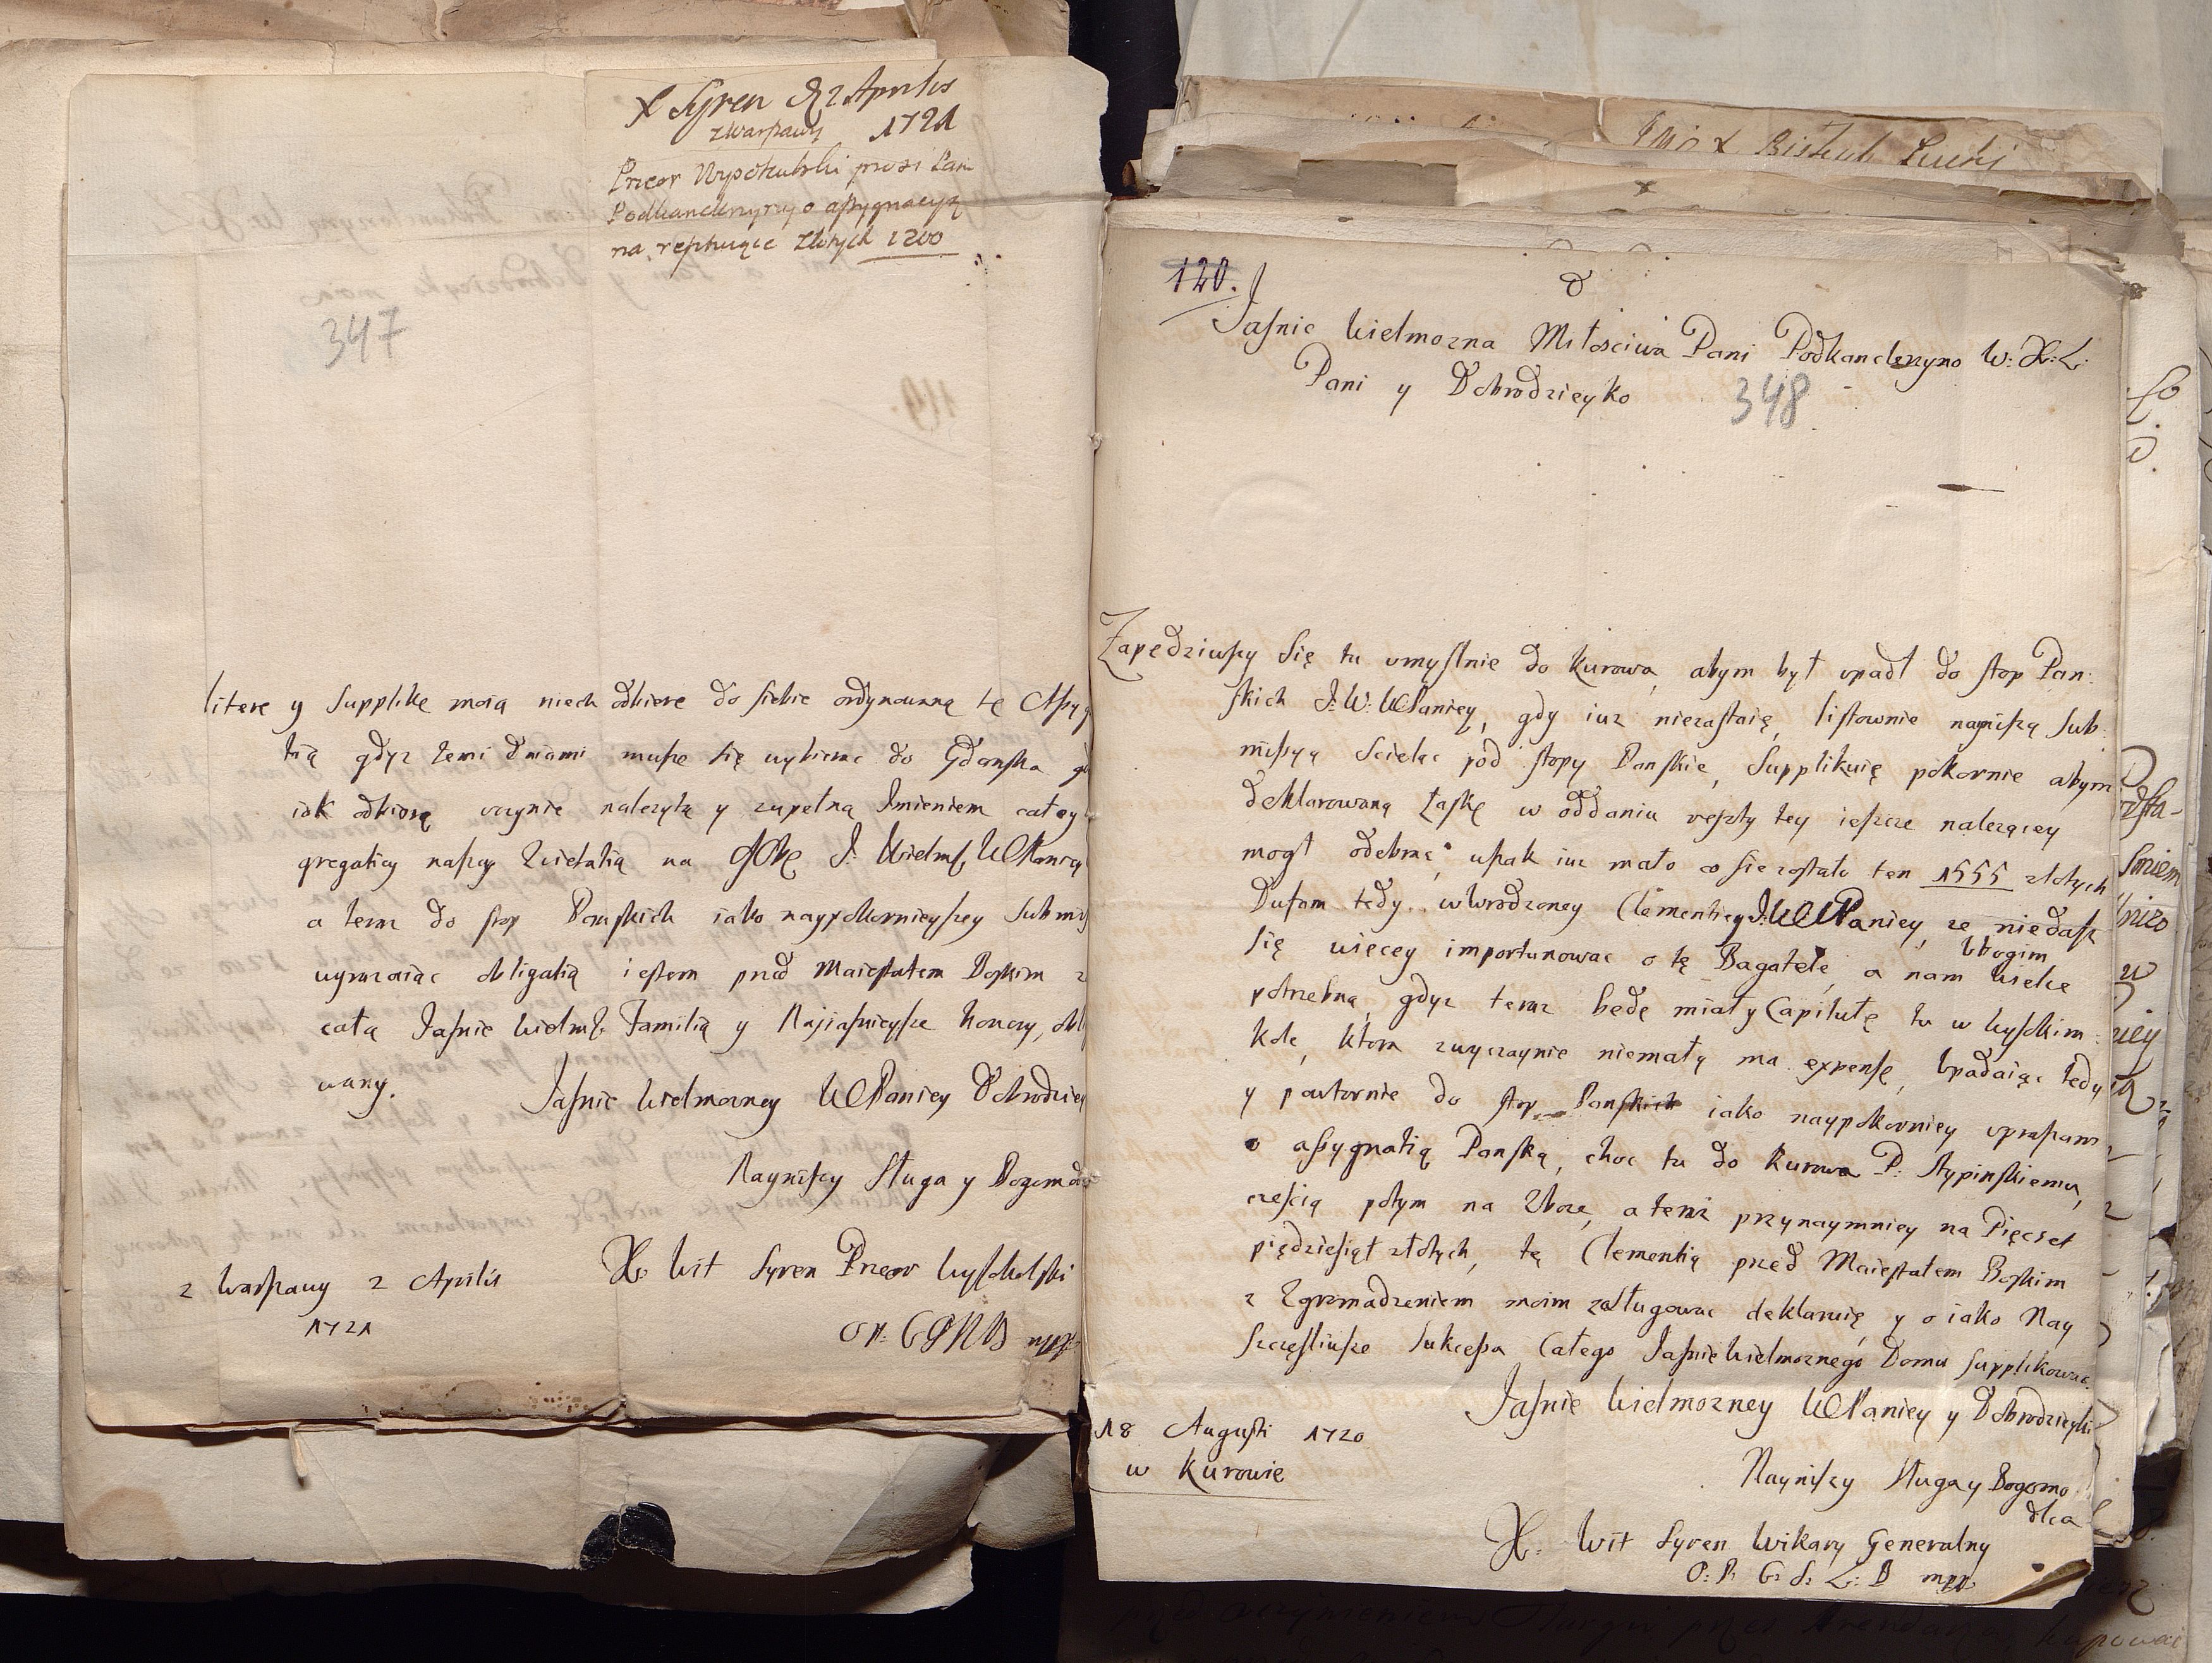 X Syren d 2 Aprilis
z Warszawy 1721
Prior Wysokulski prosi Pani
Podkanclerzyny o assygnacyą
na resztuiące złotych 1200
347
litere y Supplikę moią niech odbiere do siebie ordynowaną tę Assyg
tią gdyz temi dniami muszę się wybierac do Gdanska
iak odbiorę uczynie nalezytą y zupełną Imieniem całey
gregatiey naszey
a teraz do stop Panskich iako naypokornieyszey Submis
wyrazaiąc obligatią iestem przed Maiestatem Boskim z
całą Jasnie Wielmo Familią y Najiasnieysze honory, obl
wany.
Jasnie Wielmozney WMPaniey Dobrodziey
Naynizszy Sługa y Bogomo
X. Wit Syren Preor Wysokolski
mpp
z Warszawy 2 Aprilis
1721
120.
Jasnie Wielmozna Miłosciwa Pani Podkanclerzyno W: X: L:
Pani y Dobrodzieyko
348
Zapędziwszy Się tu umyslnie do Kurowa, abym był upadł do stop Pan:
skich J: W: WMPaniey, gdy iuz niezastaię, listownie nayniszą Sub:
missyą Scieląc pod stopy Panskie, Supplikuię pokornie abym
deklarowaną Łaskę w oddaniu reszty tey ieszcze nalezącey
mogł odebrac, wszak iuz mało co sie zostało ten 1555 złotych
Dufam tedy wwrodzoney Clementiey J: WMPaniey, ze niedasz
się więcey importunowac o tę Bagatele, a nam Ubogim wielce
potrzebną, gdyz teraz będę miały Capitułę tu w Wysokim
Kole, ktora zwyczaynie niemałą ma expensę, Upadaiąc tedy
y powtornie do stop Panskich iako naypokorniey upraszam
o assygnatią Panską, choc tu do Kurowa P: Stypinskiemu,
czescią potym na Zboze, a teraz przynaymniey na Pięcset
pięcdziesiąt złotych, tę Clementią przed Maiestatem Boskim
z Zgromadzeniem moim zasługowac deklaruię y o iako Nay
Szczęsliwsze Sukcessa Całego Jasnie Wielmoznego Domu Supplikowac.
Jasnie Wielmozney WMPaniey y Dobrodzieyki
Nayniszy Sługa y Bogomo
dlca
18 Augusti 1720
w Kurowie
X. Wit Syren Wikary Generalny
O: P: G: S: L: D mpp